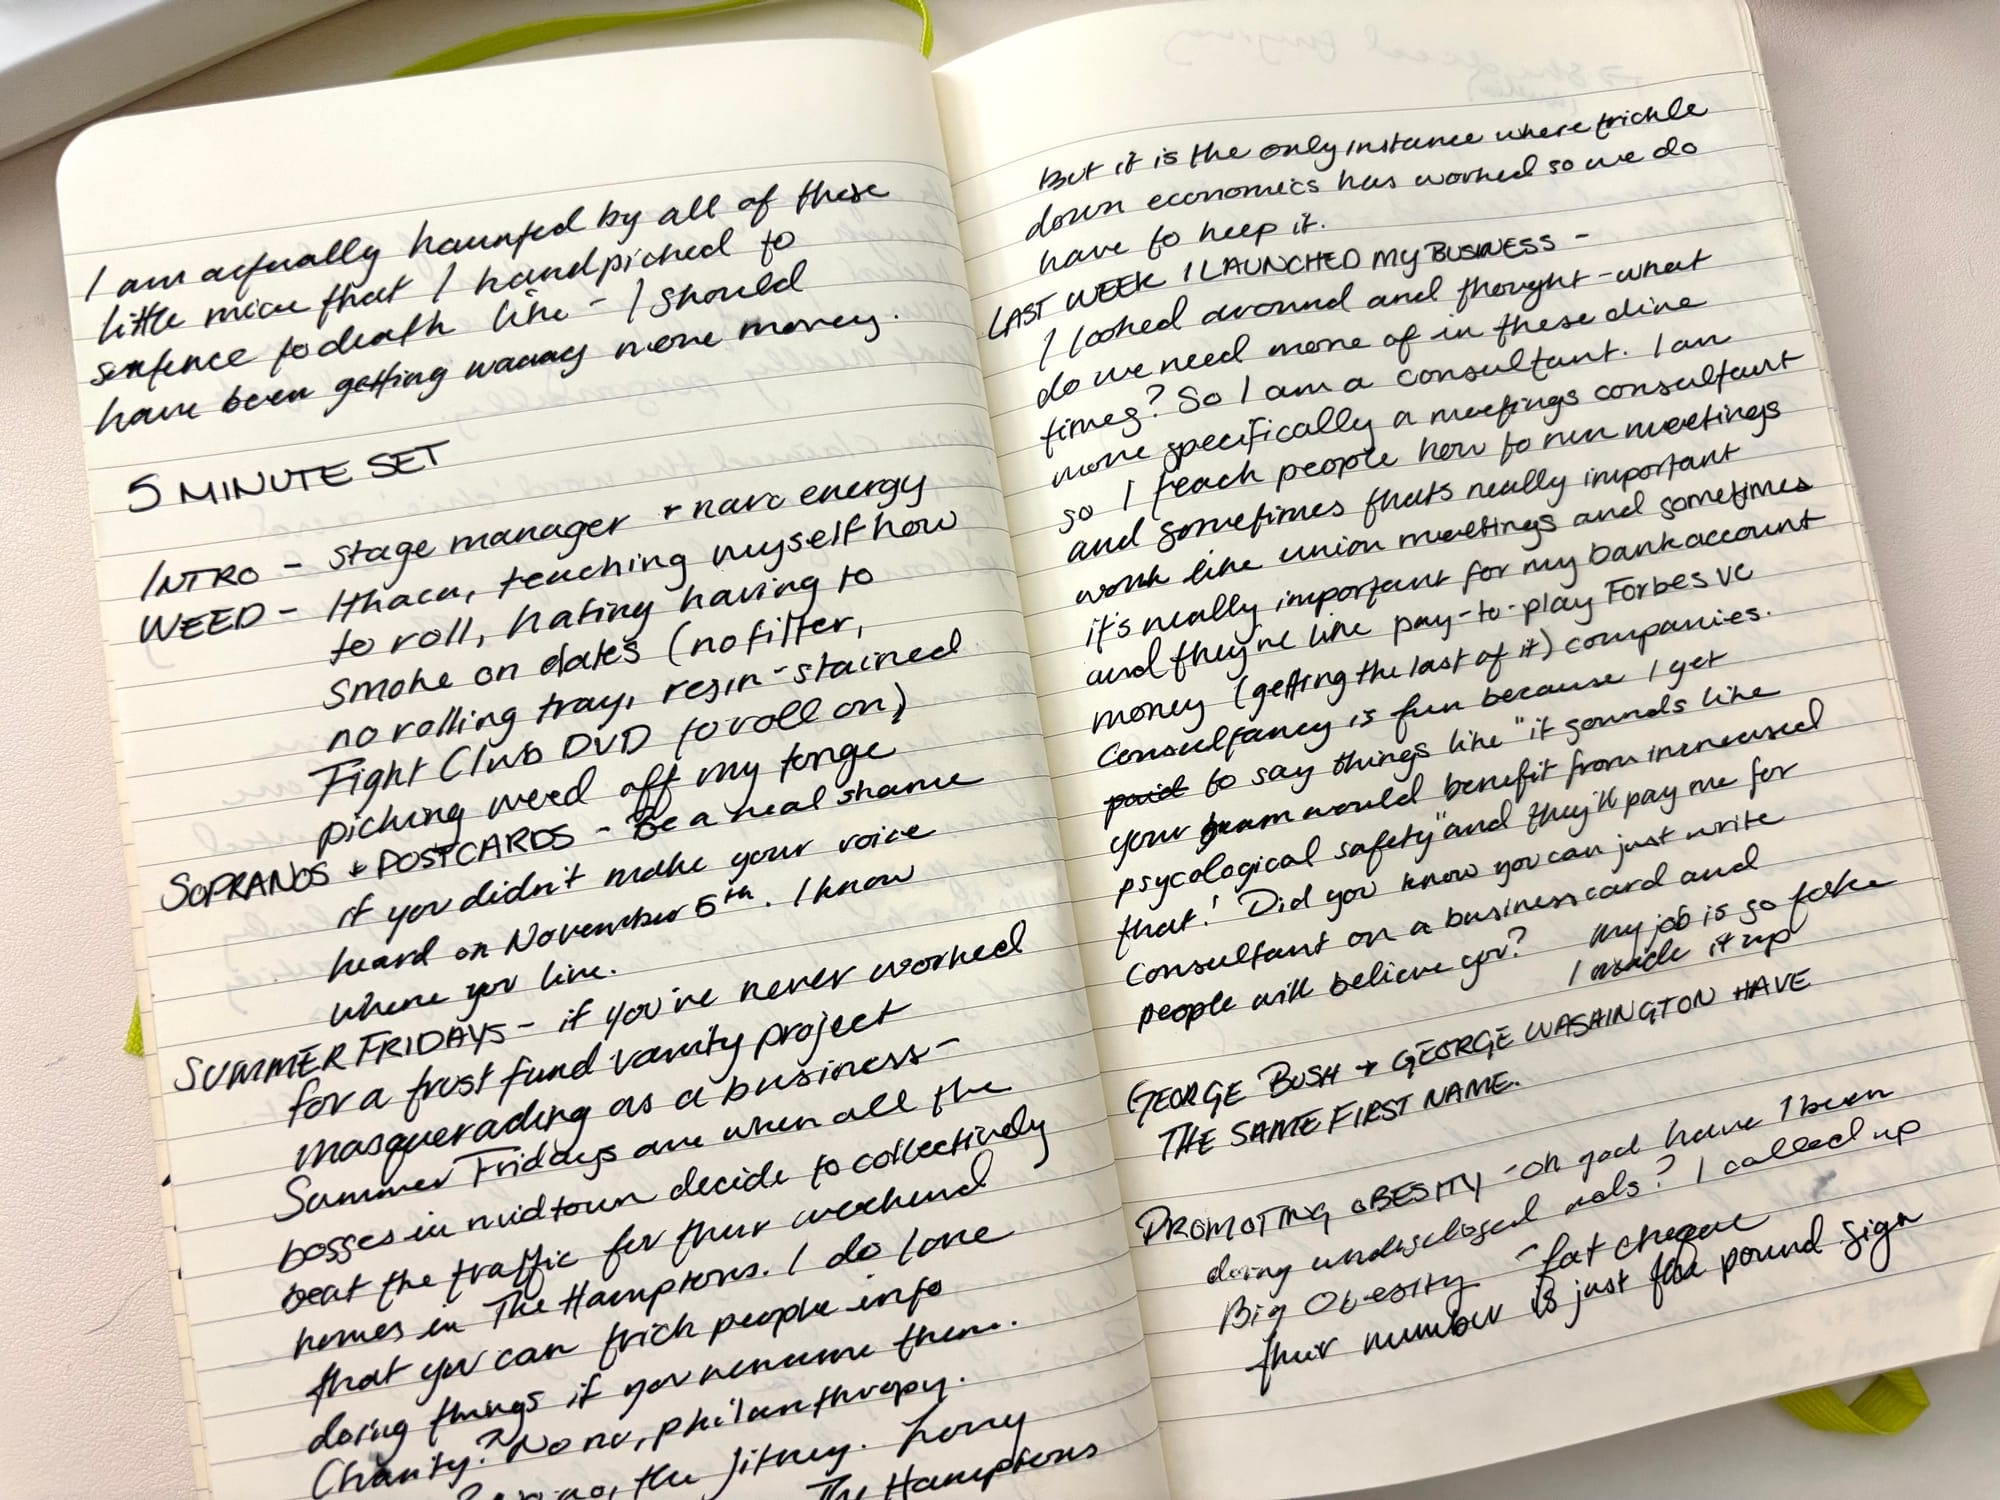 I am actually haunted by all of these
little mice that I handpicked to
sentence to death like - I should
have been getting waaay more money.
5 MINUTE SET
INTRO - stage manager + narc energy
WEED - Ithaca, teaching myself how
to roll, hating having to
smoke on dates (no filter,
no rolling tray, resin-stained
Fight Club DVD to roll on)
picking weed off my tonge
SOPRANOS + POSTCARDS - Be a real shame
if you didn't make your voice
heard on November 5th. I know
where you live.
SUMMER FRIDAYS - if you've never worked
for a trust fund vanity project
masquerading as a business -
Summer Fridays are when all the
bosses in midtown decide to collectively
beat the traffic for their weekend
homes in The Hamptons. I do love
that you can trick people into
doing things if you rename them.
Charity? No no, philanthropy.
no, the Jitney.
The Hamptons
But it is the only instance where trickle
down economics has worked so we do
have to keep it.
LAST WEEK I LAUNCHED MY BUSINESS -
I looked around and thought - what
do we need more of in these dire
times? So I am a consultant. I am
more specifically a meetings consultant
so I teach people how to run meetings
and sometimes thats really important
work like union meetings and sometimes
it's really important for my bank account
and they're like pay-to-play Forbes vc
money (getting the last of it) companies.
Consultancy is fun because I get
paid to say things like "it sounds like
your team would benefit from increased
psycological safety" and they'll pay me for
that! Did you know you can just write
Consultant on a business card and
people will believe you? My job is so fake
I made it up
GEORGE BUSH + GEORGE WASHINGTON HAVE
THE SAME FIRST NAME.
PROMOTING OBESITY - oh god have I been
doing undisclosed ads? I called up
Big Obesity - fat cheque
their number is just the pound sign